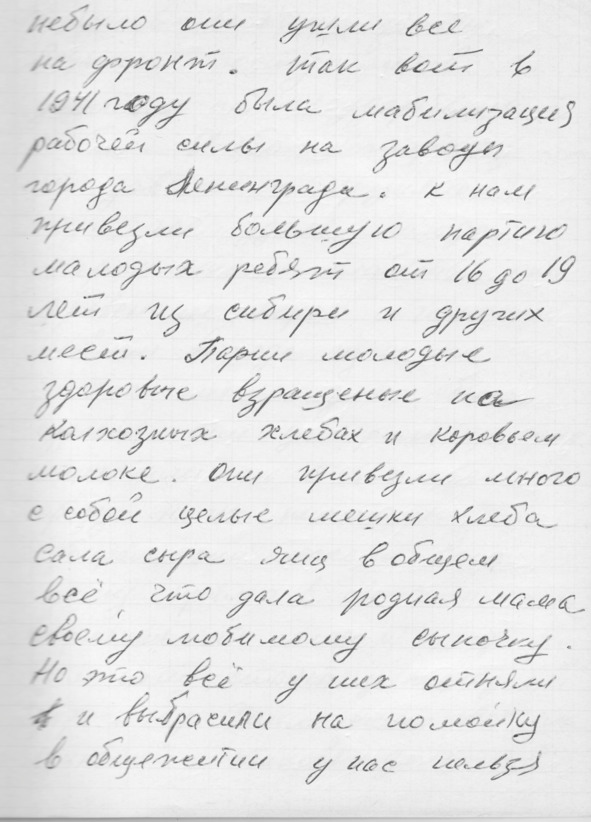 небыло они ушли все
на фронт. Так вот в
1941 году была мабилизация
рабочей силы на заводы
города Ленинграда. К нам
привезли большую партию
малодых ребят от 16 до 19
лет из сибири и других
мест. Парни молодые
здоровые взращеные на
колхозных хлебах и коровьем
молоке. Они привезли много
с собой целые мешки хлеба
сала сыра яиц в общем
всё что дала родная мама
своему любимому сыночку.
Но это всё у них отняли
и выбрасили на помойку
в общежитии у нас нельзя